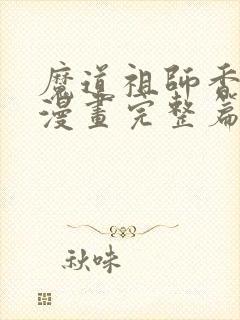 魔道祖師香
漫畫完整篇
秋味